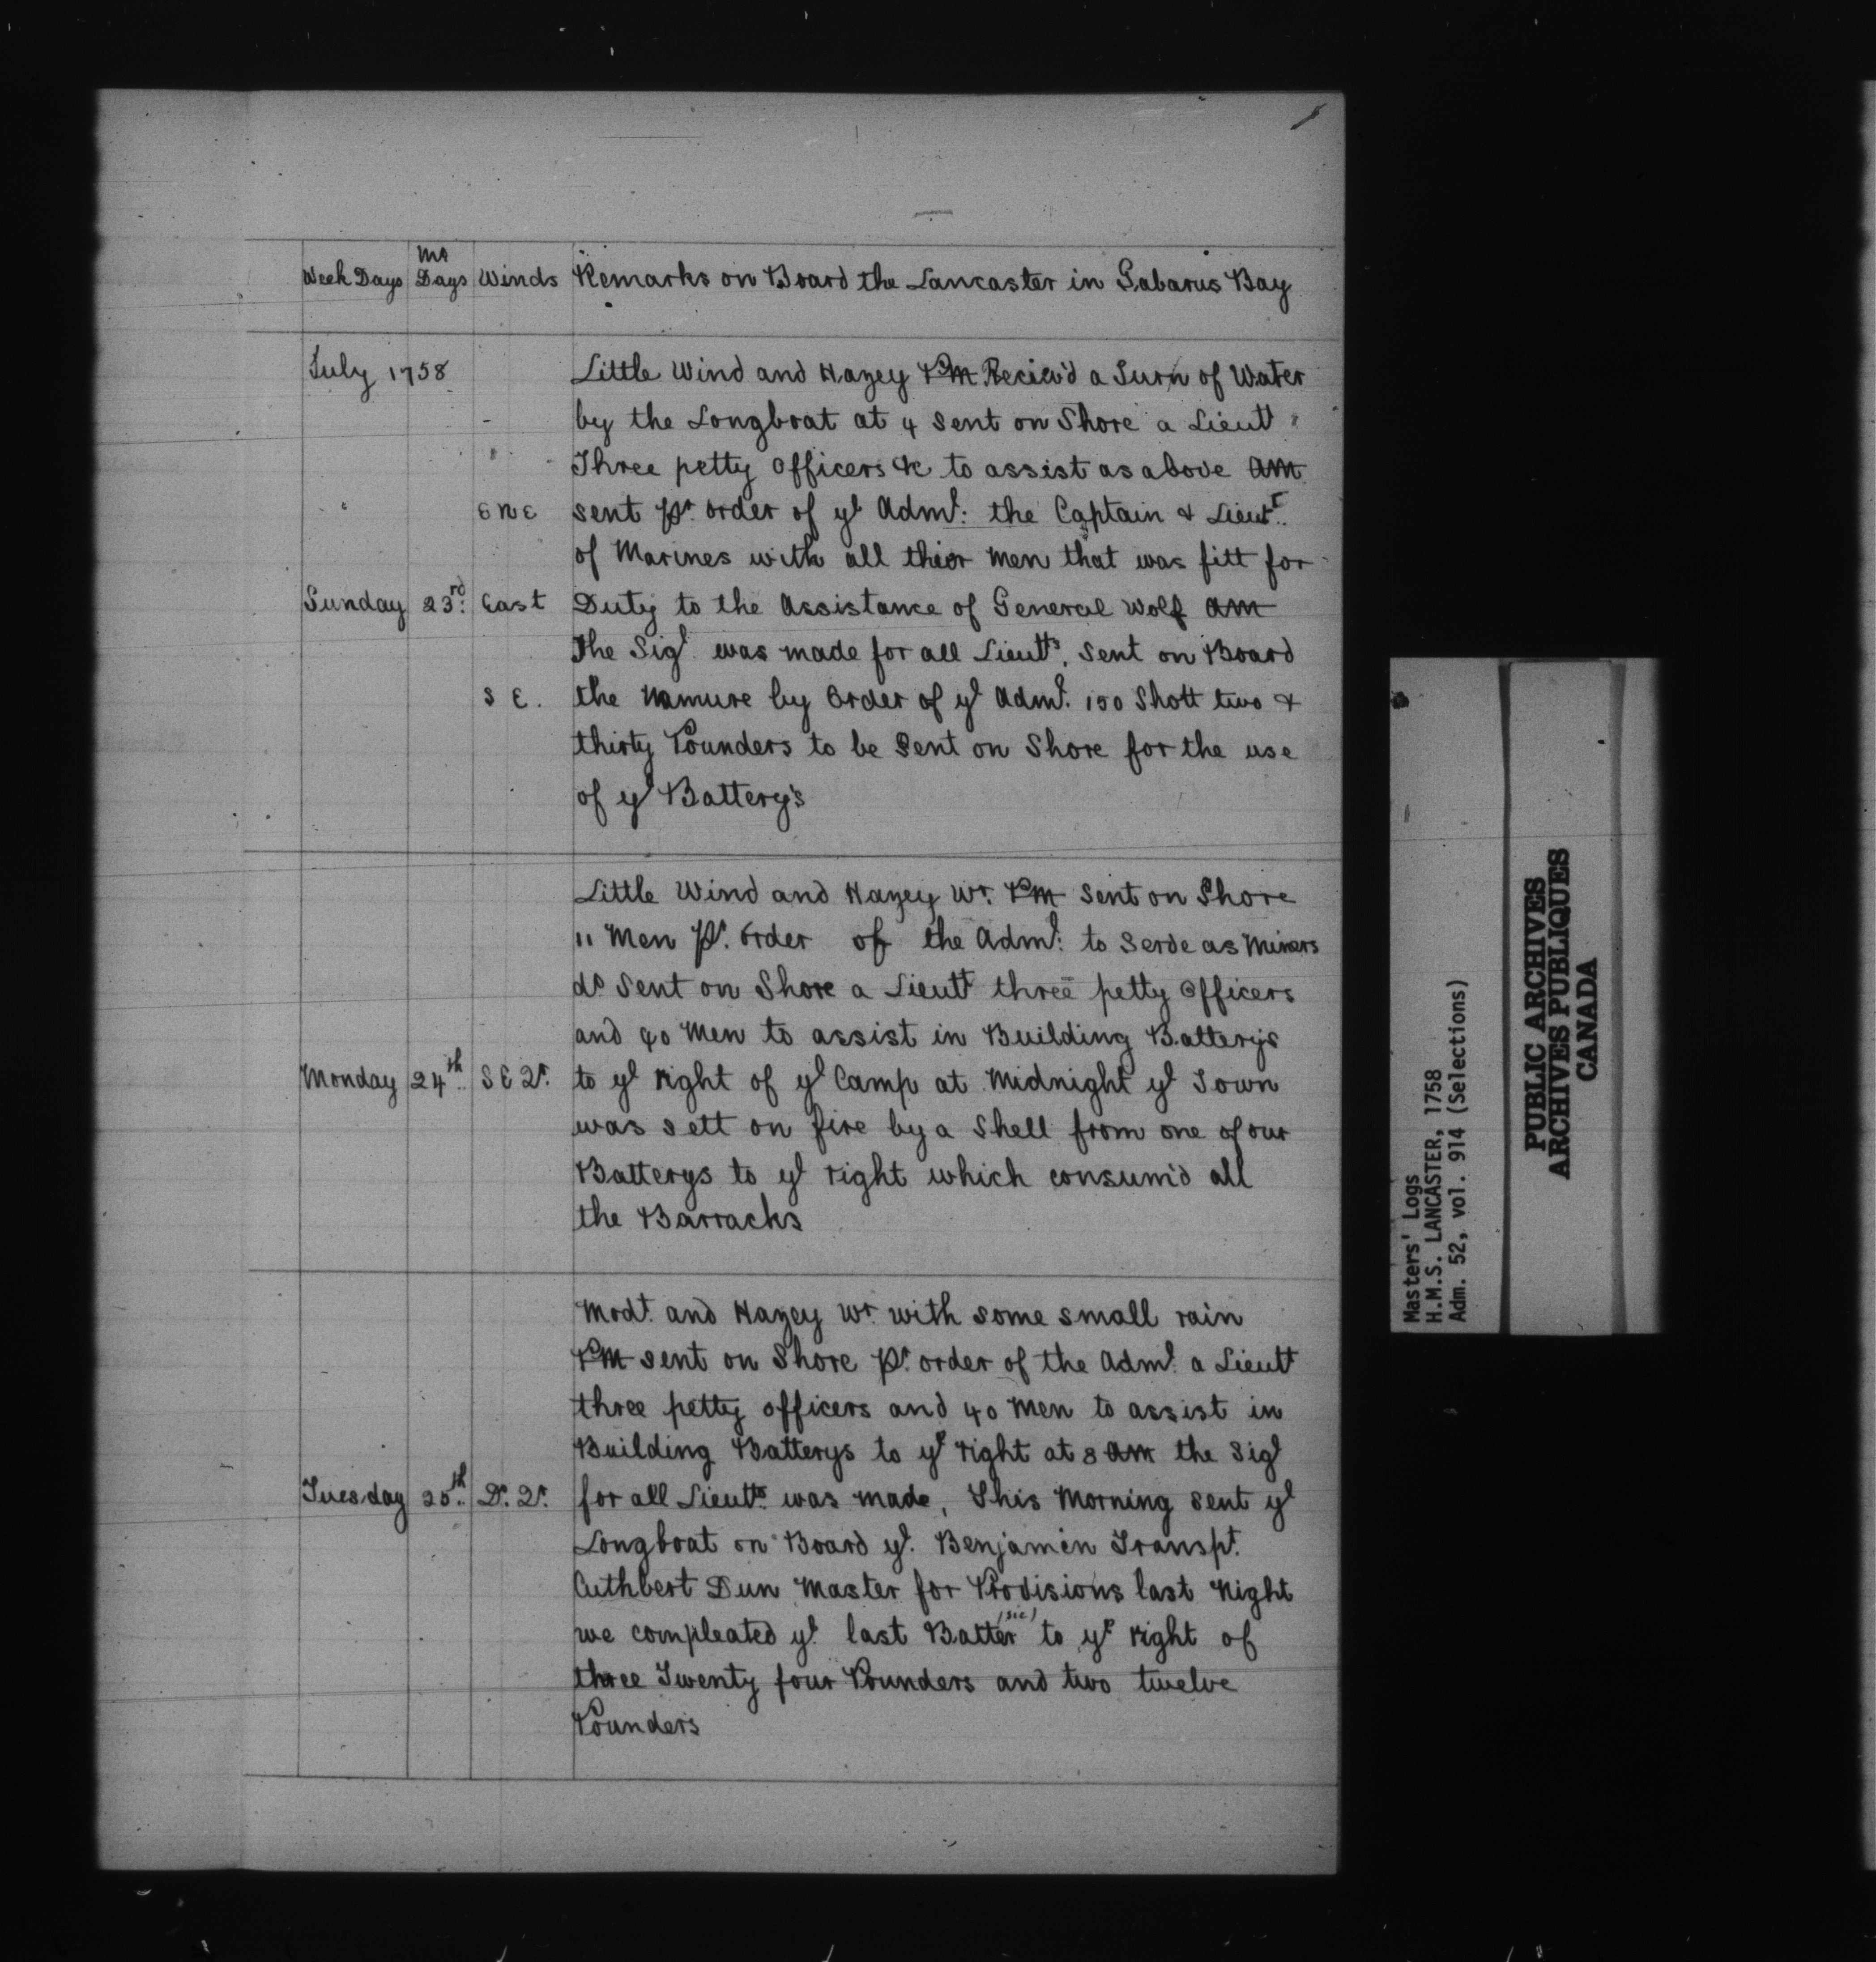 Week Days Mo Days Winds Remarks on Board the Lancaster in Gabarus Bay
July 1758 Little Wind and Hazey PM Reciev'd a Turn of Water
by the Longboat at 4 sent on Shore a Lieut
Three petty officers &c to assist as above AM
E N E sent pr. order of ye Adml: the Captain & Lieutt.
of Marines with all thier men that was fitt for
Sunday 23rd: East Duty to the Assistance of General Wolf AM
The Sigl was made for all Lieutts, sent on Board
S E. the Namure by Order of ye Adml. 150 Shott two &
thirty Pounders to be Sent on Shore for the use
of ye Battery's
Little Wind and Hazey Wr. PM sent on Shore
11 Men pr. order of the Adml: to serve as Miners
do sent on Shore a Lieutt three petty officers
and 40 Men to assist in Building Batterys
Monday 24th. S E Qr. to ye right of ye Camp at Midnight ye Town
was sett on fire by a Shell from one of our
Batterys to ye right which consum'd all
the Barracks
Modt. and Hazey Wr. with some small rain
PM sent on Shore pr. order of the Adml. a Lieutt
three petty officers and 40 Men to assist in
Building Batterys to ye right at 8 AM the Sigl
Tuesday 25th. Do. Qr. for all Lieutts. was made, This Morning sent ye
Longboat on Board ye. Benjamin Transpt.
Cuthbert Dun Master for Provisions last Night
we compleated ye. last Batter (sic) to ye right of
three Twenty four Pounders and two twelve
Pounders
Masters' Logs
H.M.S. LANCASTER, 1758
Adm. 52, vol. 914 (Selections)
PUBLIC ARCHIVES
ARCHIVES PUBLIQUES
CANADA